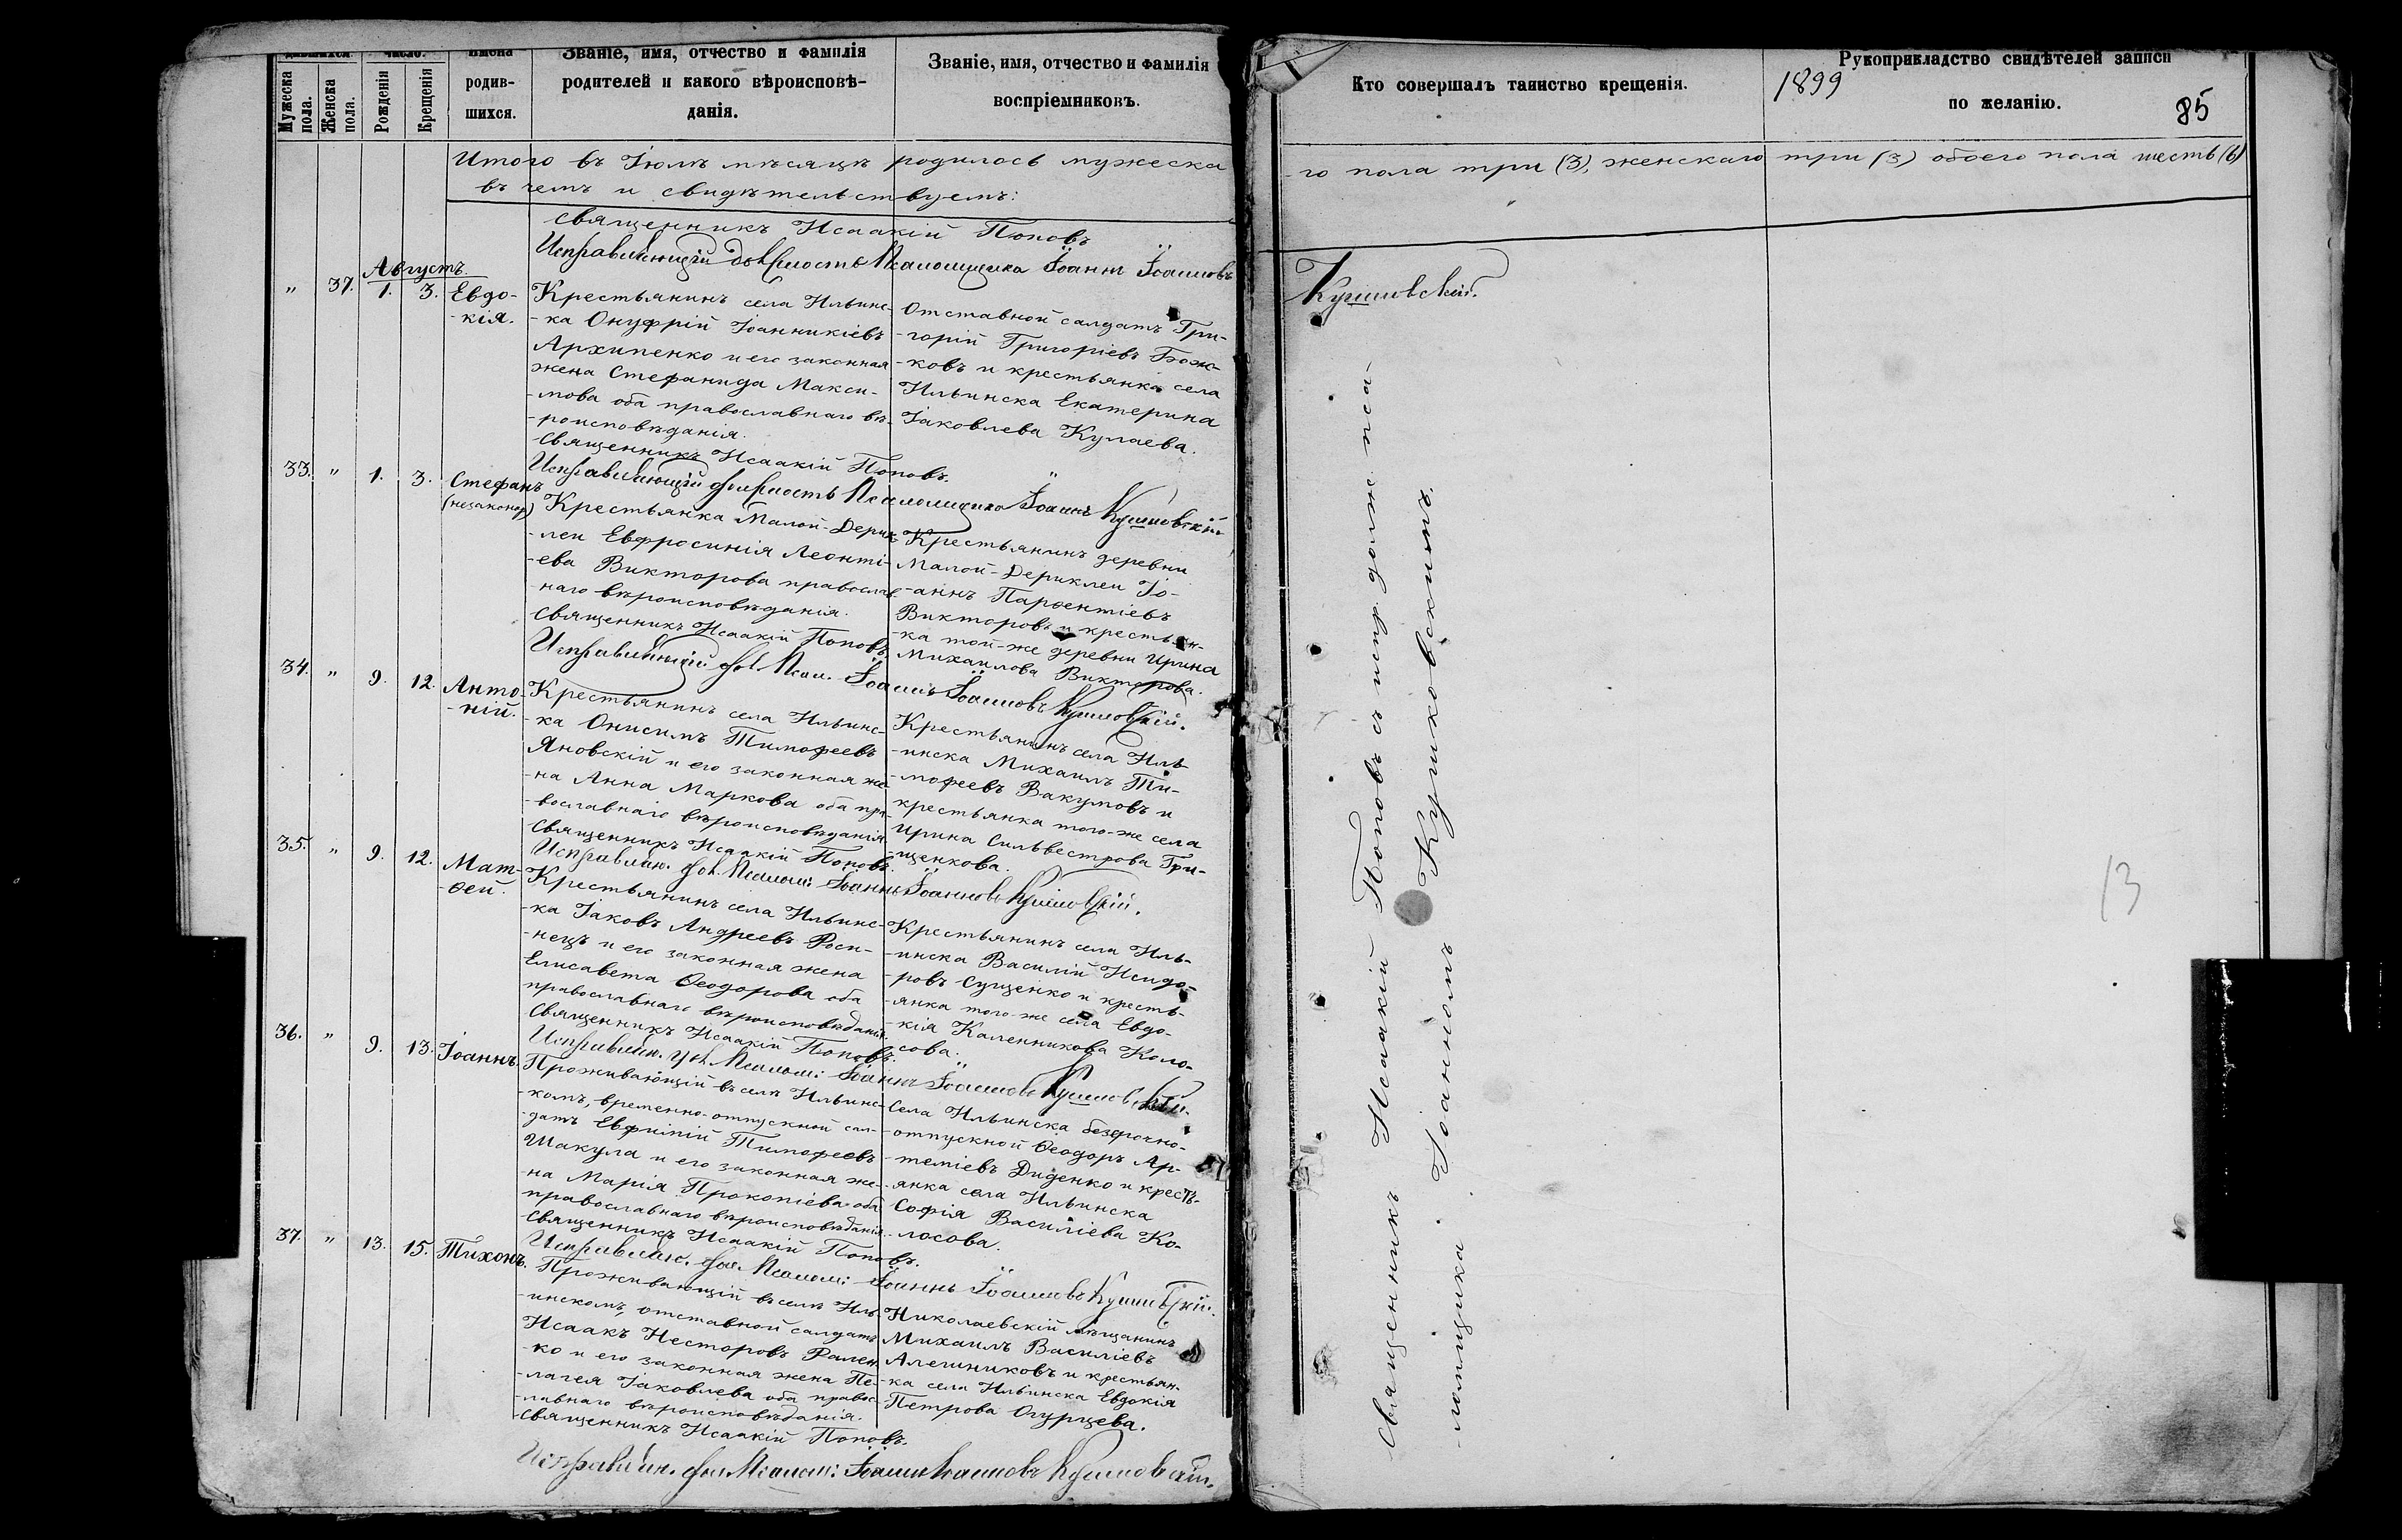 дившихся.
число.
Имена
Званіе, имя, отчество и фамилія
Званіе, имя, отчество и фамилія
Мужеска пола.
Женска пола.
Рожденія
Крещенія
родив-
шихся.
родителей и какого вѣроисповѣ-
данія.
воспріемниковъ.
Итого въ Іюлѣ мѣсяцѣ родилось мужеска
въ чемъ и свидѣтельствуемъ:
Священникъ Исаакій Поповъ
Исправляющій должность Псаломщика Іоаннъ Іоанновъ
Августъ.
" 37. 1. 3. Евдо-
-кія.
Крестьянинъ села Ильинс-
-ка Онуфрій Іоанникіевъ
Архипенко и его законная
жена Стефанида Макси-
-мова оба православнаго вѣ-
-роисповѣданія.
Отставной солдатъ Гри-
-горій Григоріевъ
-ковъ и крестьянка села
Ильинска Екатерина
Іаковлева Кулаева.
Священникъ Исаакій Поповъ.
Исправляющій должность Псаломщика Іоаннъ Кушковскій
33. " 1. 3. Стефанъ
(незаконор)
Крестьянка Малой-Дерик-
-леи Евфросинія Леонті-
-ева Викторова православ-
-наго вѣроисповѣданія.
Крестьянинъ деревни
Малой-Дериклеи Іо-
-аннъ Парѳентіевъ
Викторовъ и крестьян-
-ка той-же деревни Ирина
Михаилова Викторова.
Священникъ Исаакій Поповъ.
Исправляющій дол. Псал. Іоаннъ Іоанновъ Кушковскій.
34. " 9. 12. Анто-
-ній.
Крестьянинъ села Ильинс-
-ка Онисимъ Тимофеевъ
Яновскій и его законная же-
-на Анна Маркова оба пра-
-вославнаго вѣроисповѣданія
Крестьянинъ села Иль-
-инска Михаилъ Ти-
-мофеевъ Вакумовъ и
крестьянка того-же села
Ирина Сильвестрова Гри-
-щенкова.
Священникъ Исаакій Поповъ.
Исправляю. дол. Псалом: Іоаннъ Іоанновъ Кушковскій.
35. " 9. 12. Мат-
-ѳей.
Крестьянинъ села Ильинс-
-ка Іаковъ Андреевъ Роси-
-нецъ и его законная жена
Елисавета Ѳеодорова оба
православнаго вѣроисповѣданія.
Крестьянинъ села Иль-
-инска Василій Исидо-
-ровъ Сущенко и кресть-
-янка того-же села Евдо-
-кія Каленникова Коло-
-сова.
Священникъ Исаакій Поповъ.
Исправляю. дол. Псалом: Іоаннъ Іоанновъ Кушковскій.
36. " 9. 13. Іоаннъ.
Проживающій въ селѣ Ильинс-
-комъ, временно-отпускной сол-
-датъ Тимофеевъ
Шакула и его законная же-
-на Марія Прокопіева оба
православнаго вѣроисповѣданія.
Села Ильинска безсрочно-
-отпускной Ѳеодоръ Ар-
-теміевъ Диденко и кресть-
-янка села Ильинска
Софія Василіева Ко-
-лосова.
Священникъ Исаакій Поповъ.
Исправляю. дол. Псалом: Іоаннъ Іоанновъ Кушковскій.
37. " 13. 15. Тихонъ.
Проживающій въ селѣ Иль-
-инскомъ, отставной солдатъ
Исаакъ Несторовъ Рален-
-ко и его законная жена Пе-
-лагея Іаковлева оба правос-
-лавнаго вѣроисповѣданія.
Николаевскій мѣщанинъ
Михаилъ Василіевъ
Алешниковъ и крестьян-
-ка села Ильинска Евдокія
Петрова Огурцева.
Священникъ Исаакій Поповъ.
Исправляю. дол. Псалом: Іоаннъ Іоанновъ Кушковскій.
Кто совершалъ таинство крещенія.
1899
Рукоприкладство свидѣтелей записи
по желанію.
85
-го пола три (3), женскаго три (3) обоего пола шесть (6)
Кушковскій.
Священникъ Исаакій Поповъ съ испр. должн. пса-
-ломщика Іоанномъ Кушковскимъ.
13